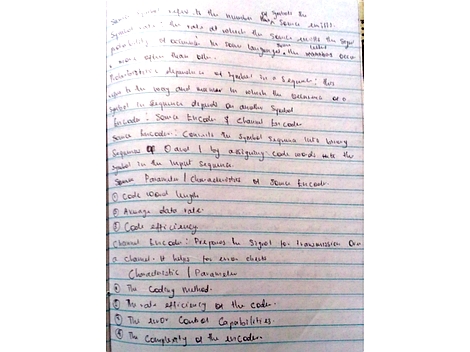 Source symbol refer to the number of symbols the
Symbol rate: the rate at which the source emits the
probability of occurence in some language, some letters occur
more often than others.
Probabilistics dependence of symbol in a sequence: this
refers to the way and manner in which the occurence of a
symbol in sequence depends on another symbol
Encoder: Source Encoder & Channel Encoder
Source Encoder: Converts the symbol sequence into binary
Sequence of 0 and 1 by assigning code words into the
symbol in the input sequence.
Source Parameter / Characteristics of Source Encoder
① Code word length
② Average data rate
③ Code efficiency
Channel Encoder: Prepares the signal for transmission over
a channel. It helps for error checks
Characteristic / Parameters
① The Coding method.
② The rate efficiency of the code.
③ The error Control Capabilities.
④ The Complexity of the encoder.